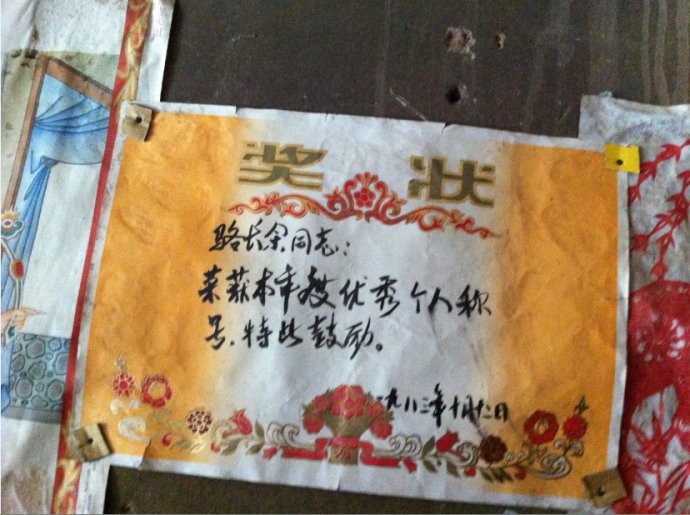 奖状
骆长余同志：
荣获本年度优秀个人称
号，特此鼓励。
一九八二年十月十二日